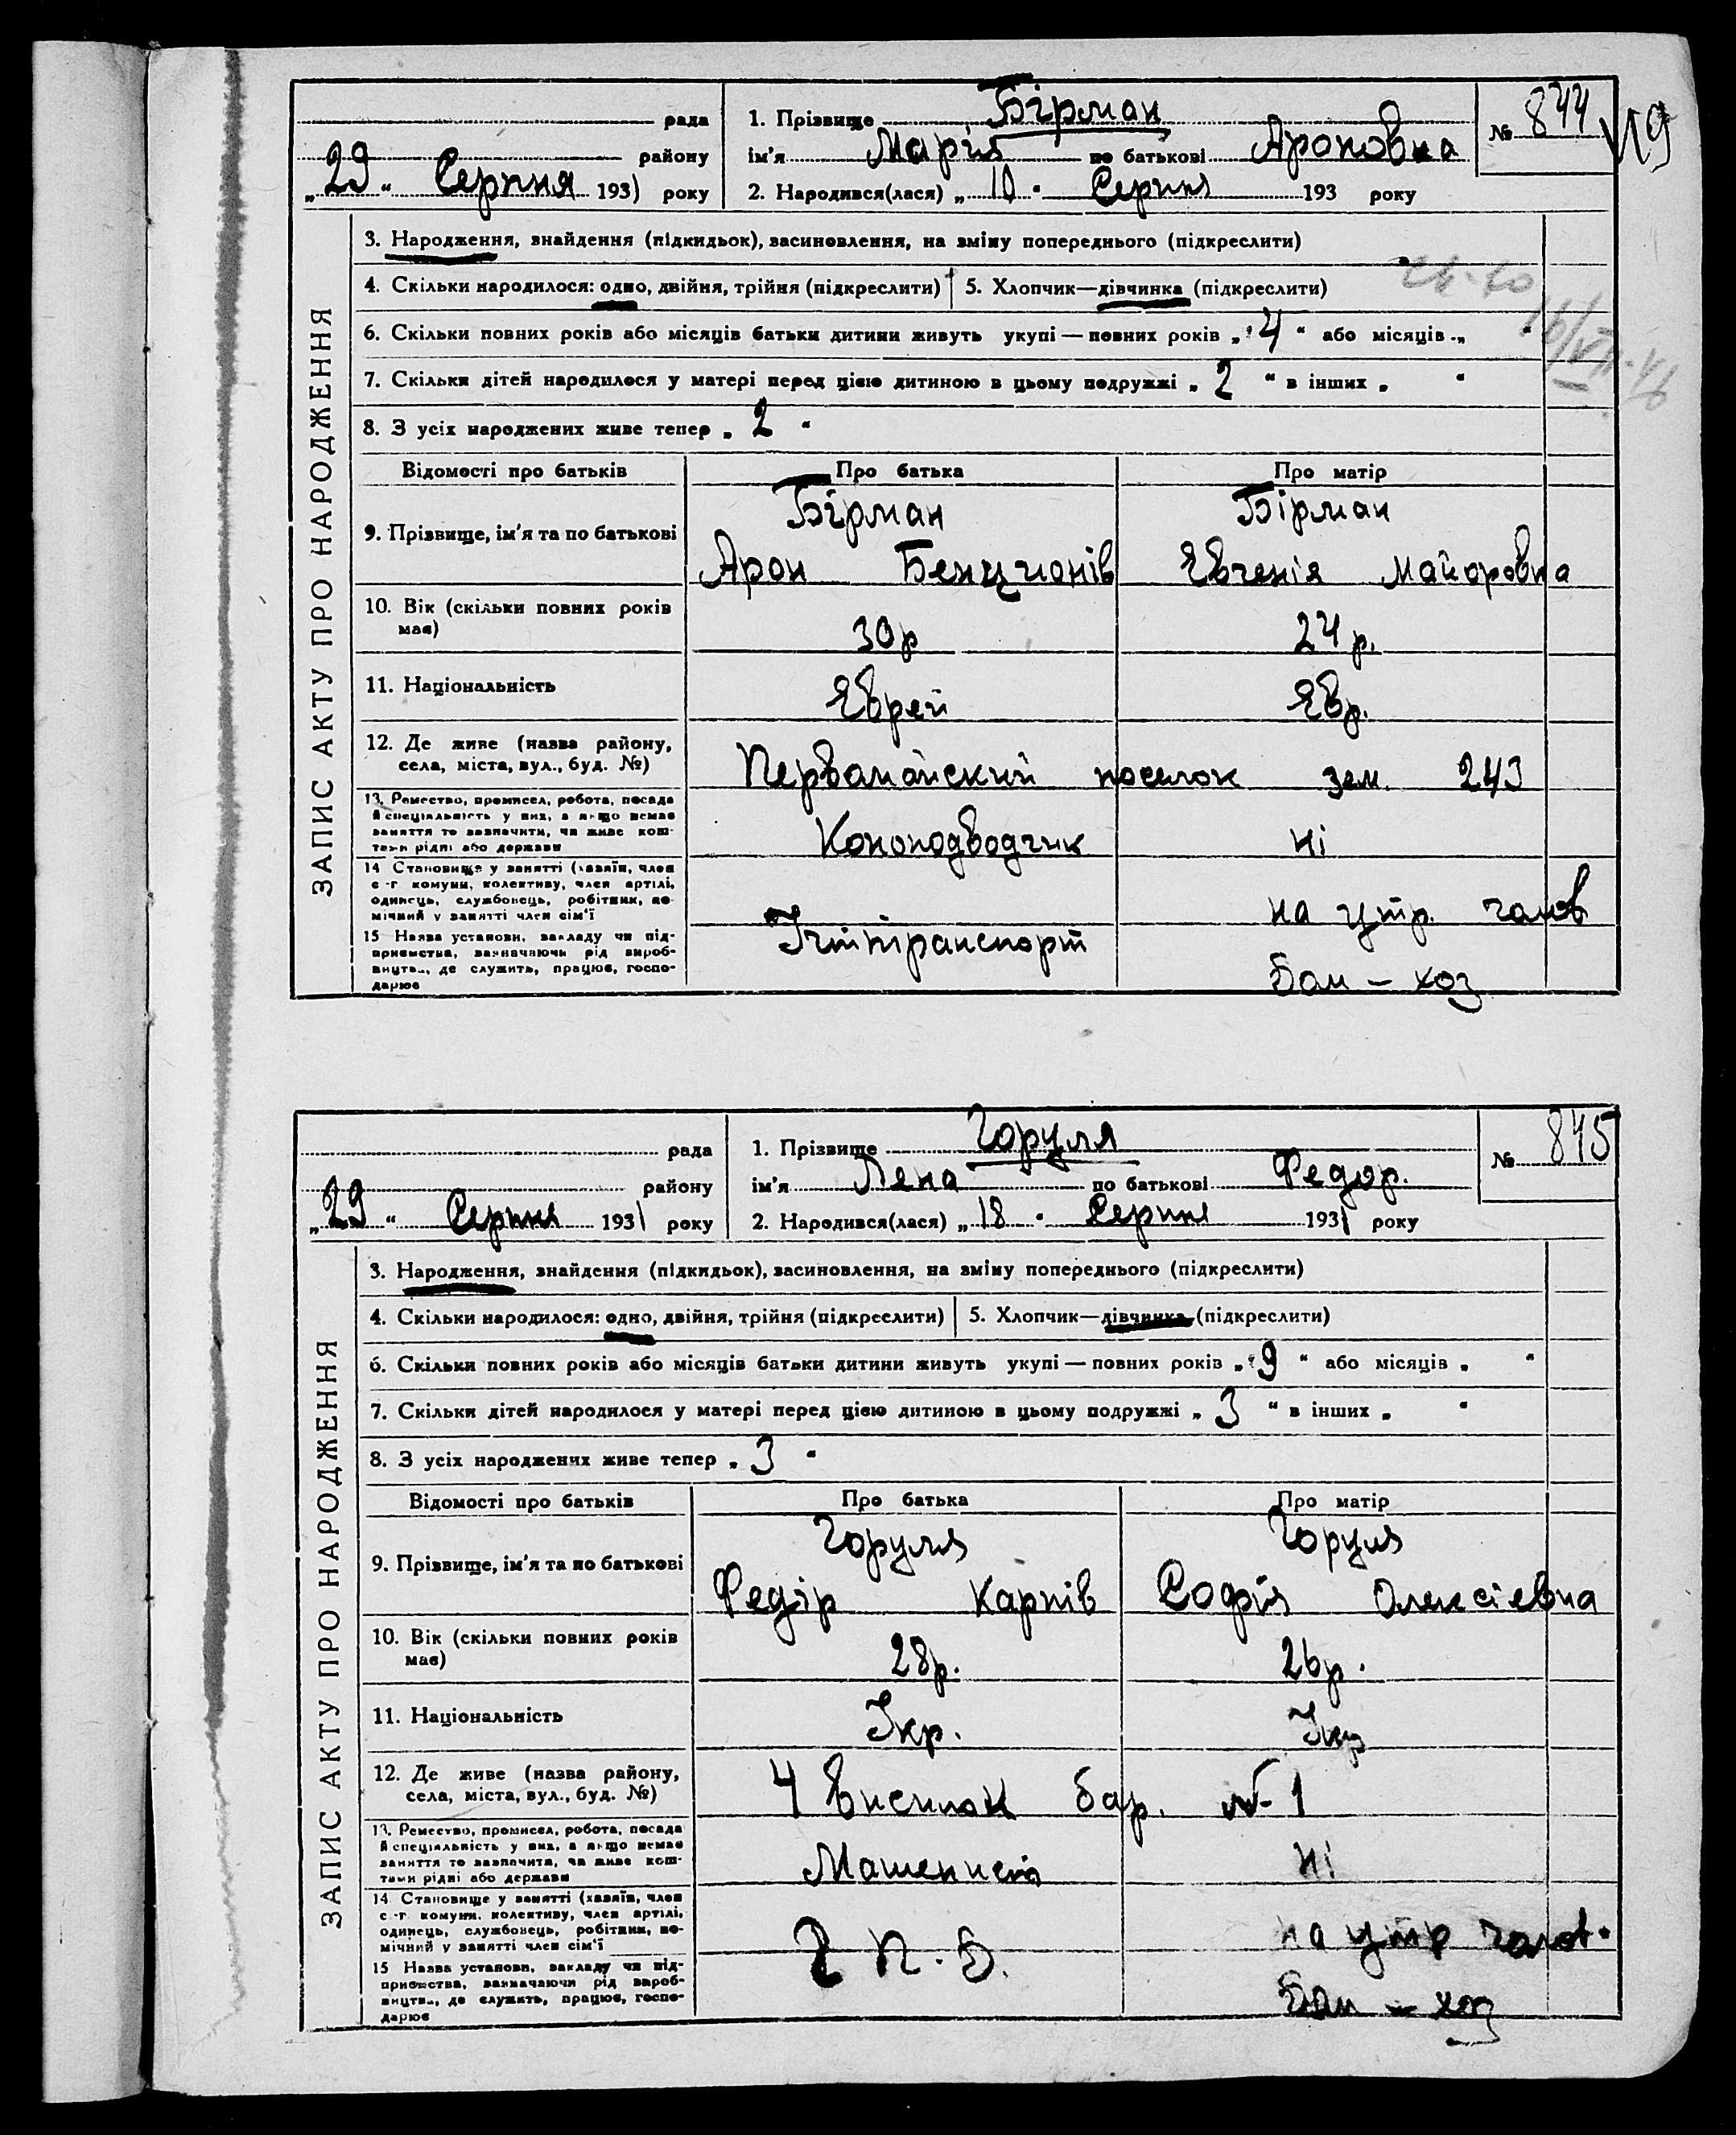 рада
району
„29“ Серпня 1931 року
1. Прізвище Бірман
ім'я Марія по батькові Ароновна
2. Народився(лася) „10“ Серпня 193 року
№ 844
19
ЗАПИС АКТУ ПРО НАРОДЖЕННЯ
3. Народження, знайдення (підкидьок), засиновлення, на зміну попереднього (підкреслити)
4. Скільки народилося: одно, двійня, трійня (підкреслити)
5. Хлопчик—дівчинка (підкреслити)
6. Скільки повних років або місяців батьки дитини живуть укупі — повних років „4“ або місяців „ “
7. Скільки дітей народилося у матері перед цією дитиною в цьому подружжі „2“ в інших „ “
8. З усіх народжених живе тепер „2“
Відомості про батьків
Про батька
Про матір
9. Прізвище, ім'я та по батькові
Бірман
Арон Бенционів
Бірман
Євгенія Майоровна
10. Вік (скільки повних років має)
30р
24 р.
11. Національність
Єврей
Євр.
12. Де живе (назва району, села, міста, вул., буд. №)
Первамайский поселок зем. 243
13. Ремество, промисел, робота, посада й спеціяльність у них, а якщо немає заняття то зазначити, чи живе коштами рідні або держави
Коноподводчик
ні
14 Становище у занятті (хазяїн, член с.-г. комуни, колективу, член артілі, одинець, службовець, робітник, помічний у занятті член сім'ї
на утр. чолов
15 Назва установи, закладу чи підприємства, зазначаючи рід виробництва, де служить, працює, господарює
транспорт
Дом – хоз
рада
району
„29“ Серпня 1931 року
1. Прізвище Горуля
ім'я Лена по батькові Федор.
2. Народився(лася) „18“ Серпня 1931 року
№ 845
ЗАПИС АКТУ ПРО НАРОДЖЕННЯ
3. Народження, знайдення (підкидьок), засиновлення, на зміну попереднього (підкреслити)
4. Скільки народилося: одно, двійня, трійня (підкреслити)
5. Хлопчик—дівчинка (підкреслити)
6. Скільки повних років або місяців батьки дитини живуть укупі — повних років „9“ або місяців „ “
7. Скільки дітей народилося у матері перед цією дитиною в цьому подружжі „3“ в інших „ “
8. З усіх народжених живе тепер „3“
Відомості про батьків
Про батька
Про матір
9. Прізвище, ім'я та по батькові
Горуля
Федір Карпів
Горуля
Софія Олексієвна
10. Вік (скільки повних років має)
28р.
26р.
11. Національність
Укр.
Укр
12. Де живе (назва району, села, міста, вул., буд. №)
4 висилок бар. № 1
13. Ремество, промисел, робота, посада й спеціяльність у них, а якщо немає заняття то зазначити, чи живе коштами рідні або держави
Машенист
ні
14 Становище у занятті (хазяїн, член с.-г. комуни, колективу, член артілі, одинець, службовець, робітник, помічний у занятті член сім'ї
на утр чолов.
15 Назва установи, закладу чи підприємства, зазначаючи рід виробництва, де служить, працює, господарює
Дом – хоз